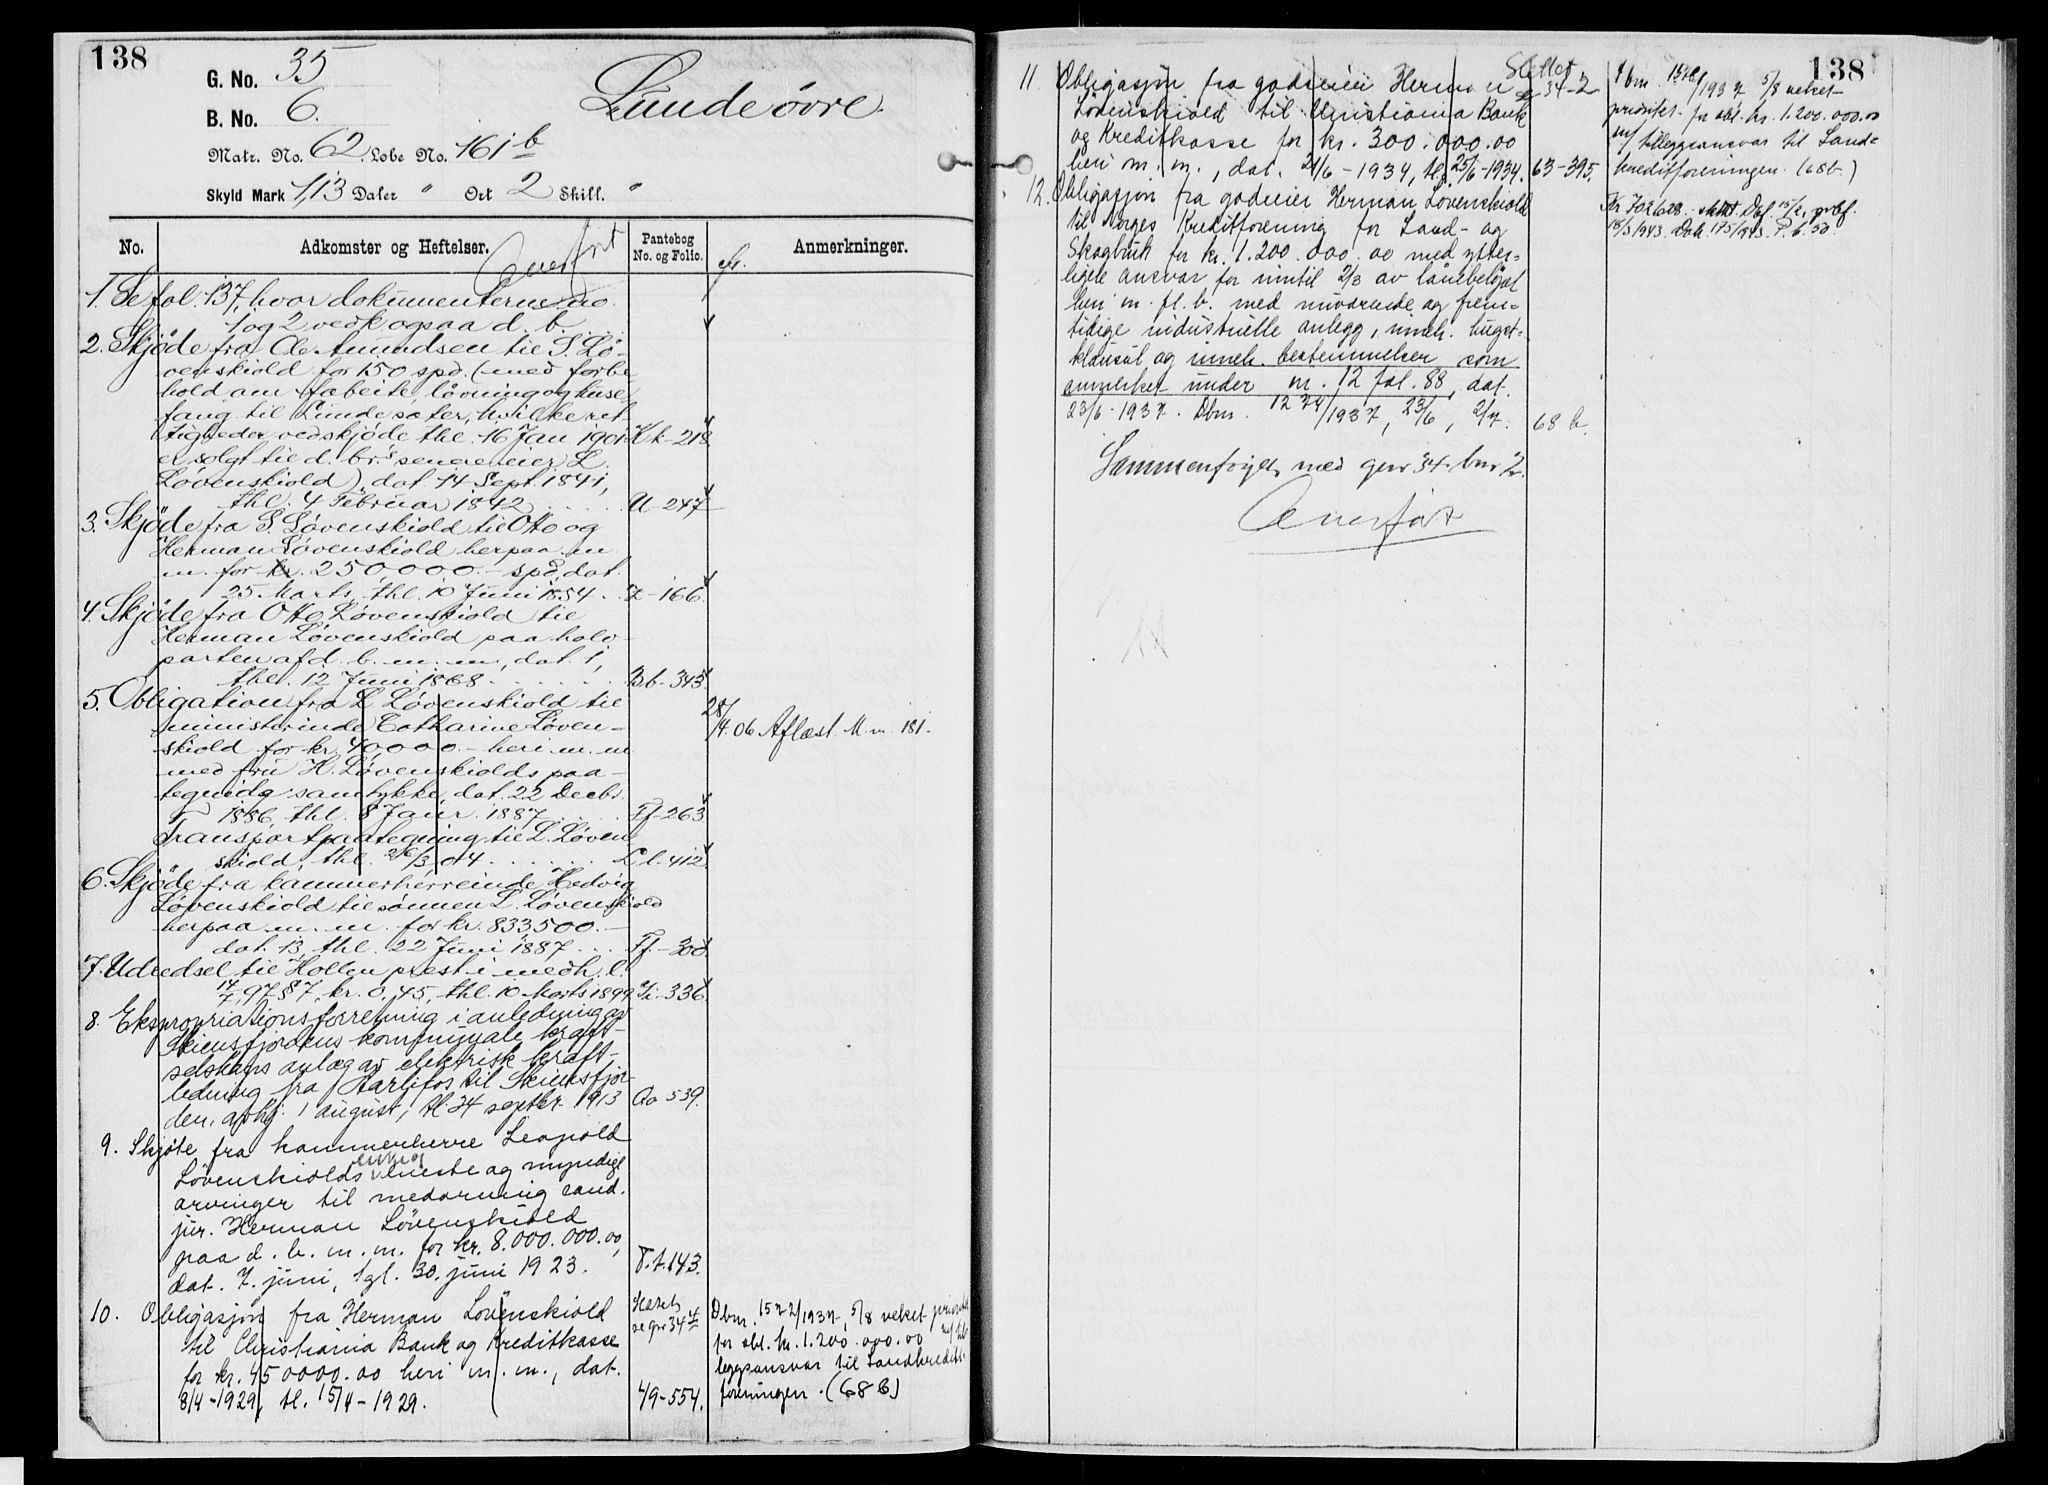 138
G. No. 35
B. No. 6.
Matr. No. 62. Løbe No. 161 b
Skyld Mark 1,13 Daler " Ort 2 Skill. "
Lunde øvre.
No.
Adkomster og Heftelser.
Overført
Pantebog
No. og Folio.
Anmerkninger.
1. Se fol. 137, hvor dokumenterne no.
1 og 2 vedk. ogsaa d. b.
2. Skjøde fra Ole Amundsen til S. Lö-
venskiold for 150 spd. (med forbe-
hold om fæbeite, løvning og huse
fang til Lunde sæter, hvilke ret
tigheder ved skjøde thl. 16 Jan 1901 Kk-218
er solgt til d. br.s senere eier L.
Løvenskiold), dat. 14 Sept. 1841,
thl. 4 Februar 1842 . . . . U-247
3. Skjöde fra S. Løvenskiold til Otto og
Herman Løvenskiold herpaa m.
m. for kr. 250,000.- spd, dat.
25 Marts, thl. 10 Juni 1854. Z-166.
4. Skjøde fra Otto Løvenskiold til
Herman Løvenskiold paa halv-
parten af d. b. m. m., dat. 1,
thl. 12 Juni 1868 . . . . . . Bb-345.
5. Obligation fra L. Løvenskiold til
ministerinde Catharine Løven-
skiold for kr. 40000.- heri m. m
28/4.06 Aflæst M. m. 181.
med fru H. Løvenskiolds paa-
tegnede samtykke, dat. 22 Decbr.
1886, thl. 8 Januar 1887 . . . Ff-263
Transportpaategning til L. Løven
skiold, thl. 26/3.04 . . . . . . Ll-412.
6. Skjöde fra kammerherreinde Hedvig
Løvenskiold til sønnen L. Løvenskiold
herpaa m. m. for kr. 833500.-
dat. 13, thl. 22 Juni 1887 . . . Ff.-300.
7. Udredsel til Hollen prest i medh. l.
14/7.97 § 7, kr. 0,45, thl. 10 Marts 1899 Ii-336.
8. Ekspropriationsforretning i anledning av
Skiensfjordens kommunale kraft-
selskaps anlæg av elektrisk kraft-
ledning fra Aarlifos til Skiensfjor-
den, avhj. 1 august, tl. 24 septbr. 1913 Oo 539.
9. Skjøte fra kammerherre Leopold
Løvenskiolds enke og
eneste og myndige
arvinger til medarving cand.
jur. Herman Løvenskiold
paa d. b. m. m. for kr. 8.000.000.00,
dat. 7. juni, tgl. 30. juni 1923. T.t.143.
10. Obligasjon fra Herman Lövenskiold
til Christiania Bank og Kreditkasse
for kr. 450000.00 heri m. m., dat.
8/4-1929, tl. 15/4-1929. 49-554.
se gnr 34
Dbnr. 1572/1937, 5/8 veket prioritet
for obl. kr. 1.200.000.00
leggsansvar til Landkreditt-
foreningen. (68 b)
138
11. Obligasjon fra godseier Herman
Slettet
34-2
Lövenskiold til Christiania Bank
og Kreditkasse for kr. 300.000.00
heri m. m., dat. 21/6-1934, tl. 25/6-1934. 63-395.
Dbnr. 1572/1937 5/8 veket
prioritet for obl. kr. 1.200.000.00
m/ tilleggsansvar til Land-
kreditforeningen. (68 b)
12. Obligasjon fra godseier Herman Lövenskiold
til Norges Kreditforening for Land- og
Skogbruk for kr. 1.200.000.00 med ytter-
ligere ansvar for inntil 2/3 av lånebelöpet
heri m. fl. b. med nuværende og frem-
tidige industrielle anlegg, inneh.
klausul og inneh. bestemmelser som
anmerket under nr. 12 fol. 88, dat.
23/6-1937. Dbnr. 1274/1937, 23/6, 2/7. 68 b.
Kr 702628 slettet. Dbf. 15/2,
18/3 1943. Dok. 175/1943. P. b. 50.
Sammenföyet med gnr 34 bnr 2.
Overfört